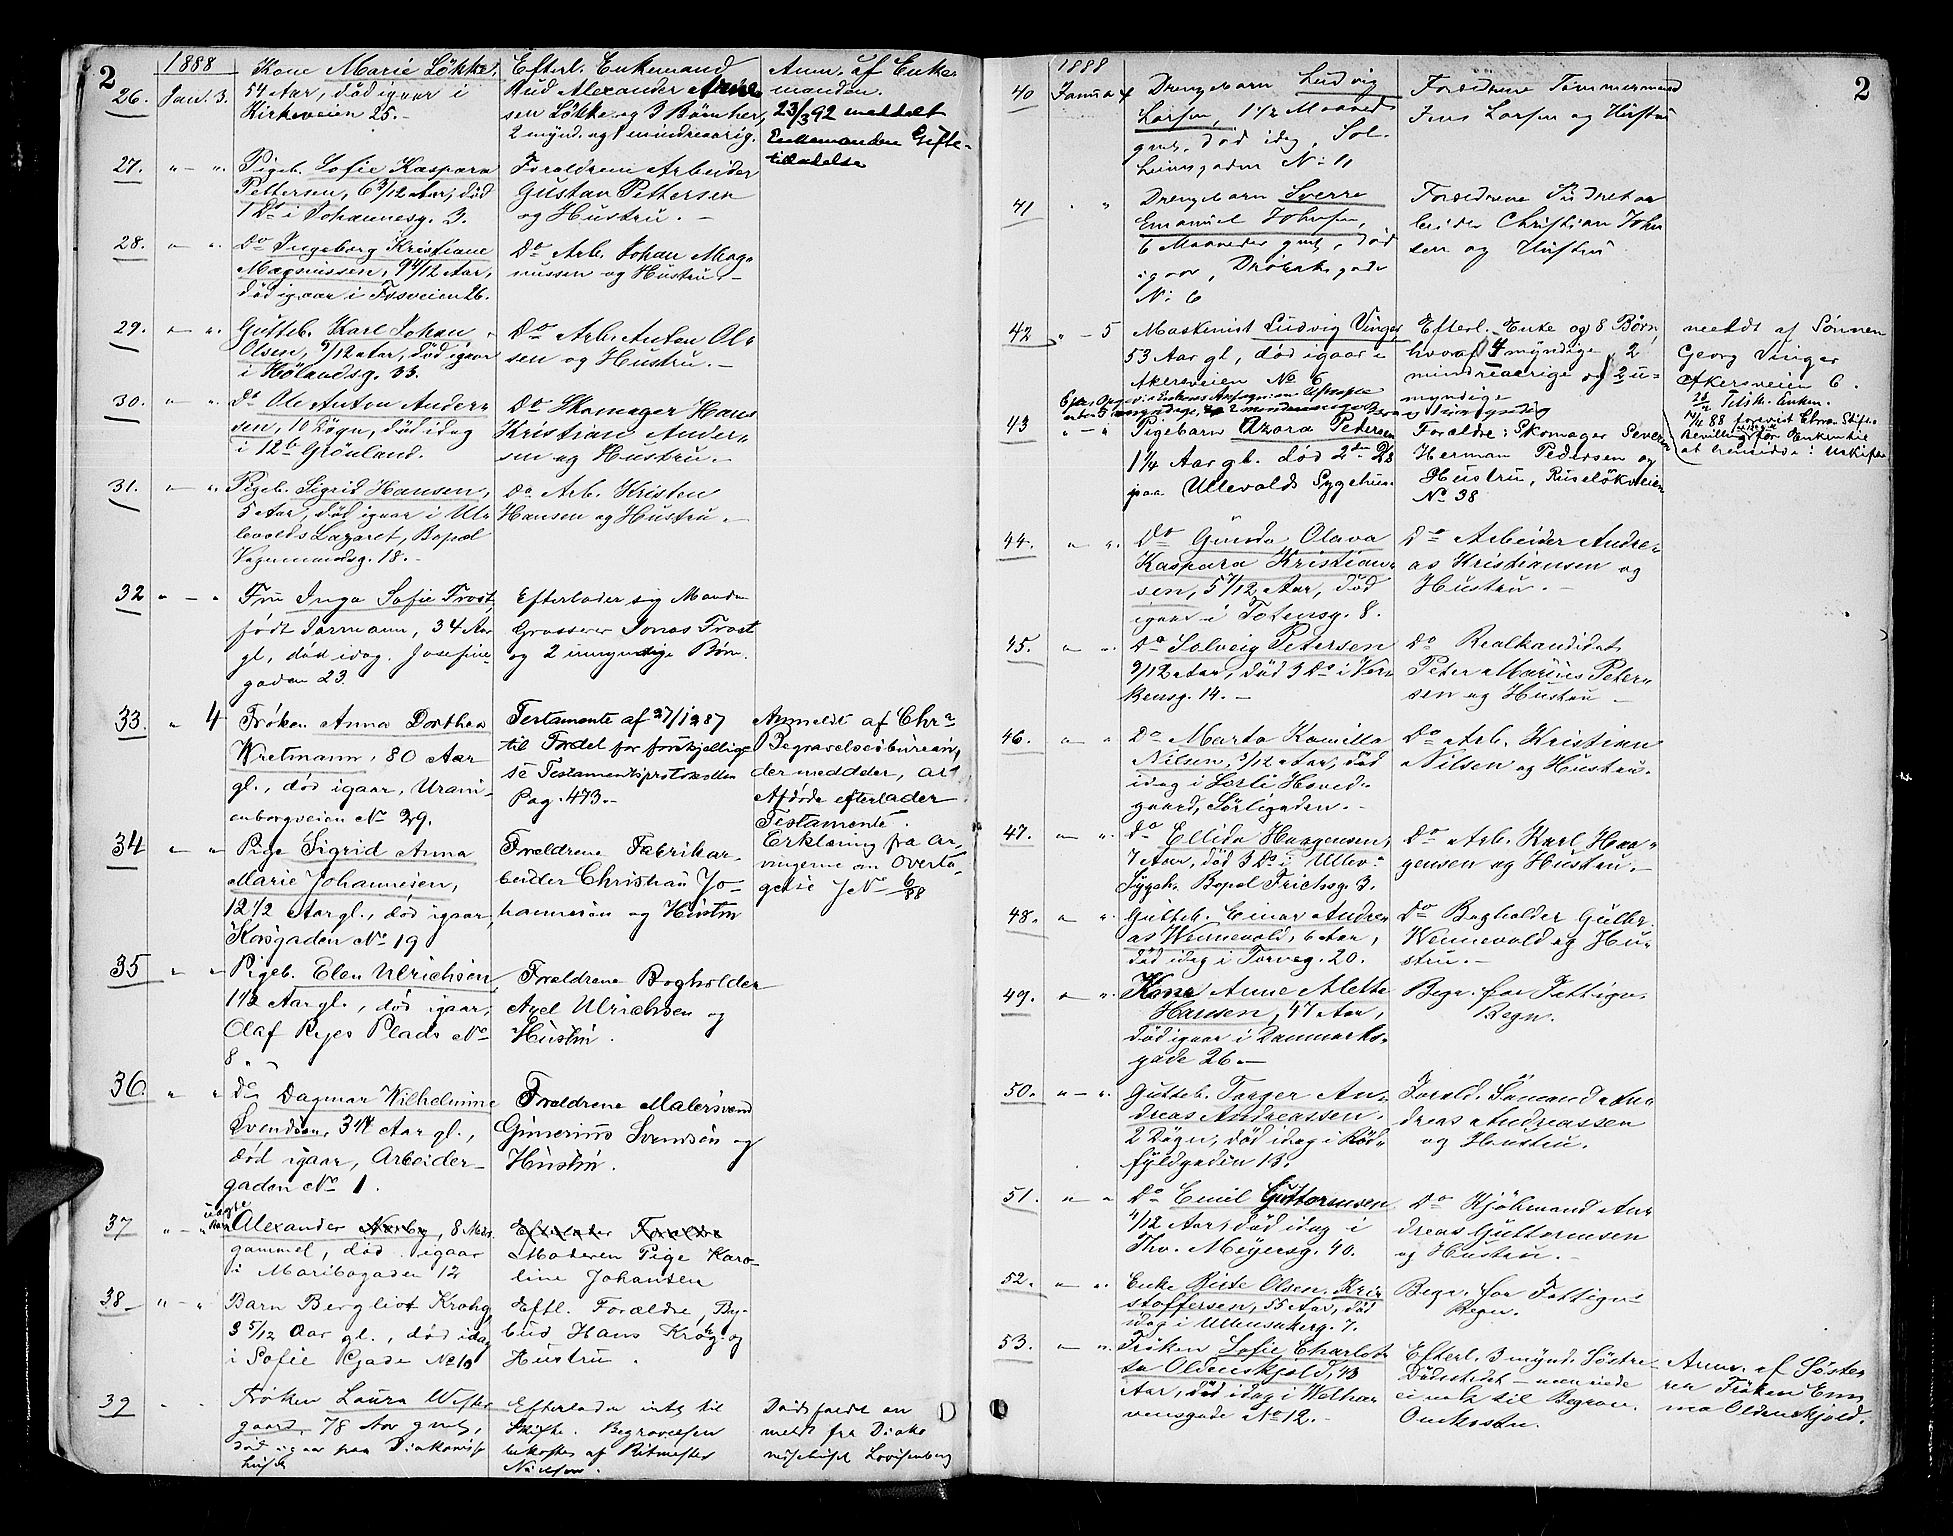 2
1888
26. Jan. 3. Kone Marie Lökke,
54 Aar, död igaar i
Kirkeveien 25.-
Efterl. Enkemand
Aud Alexander
sen Lökke og 3 Börn her,
2 mynd. og 1 mindreaarig.
Anm. af Enke
manden.
23/3 92 meddelt
Enkemanden Gifte-
tilladelse
27. " - " Pigeb. Sofie Kaspara
Pettersen, 6 3/12 Aar, död
1 Ds i Johannesg. 3.
Forældrene Arbeider
Gustav Pettersen
og Hustru. -
28. " - " Do Ingeborg Kristiane
Magnussen, 9 4/12 Aar,
död igaar i Fosveien 26.
Do Arb. Johan Mag-
nussen og Hustru. -
29. " - " Gutteb. Karl Johan
Olsen, 9/12 Aar, död igaar
i Hölandsg. 33.
Do Arb. Anton Ol-
sen og Hustru. -
30. " - " Do Ole Anton Ander-
sen, 10 Dögn, död idag
i 12b Grönland.
Do Skomager Hans
Kristian Ander-
sen og Hustru. -
31. " - " Pigeb. Sigrid Hansen,
5 Aar, död igaar i Ul-
levolds Lazaret, Bopæl
Vognmandsg. 18. -
Do Arb. Kristen
Hansen og Hustru. -
32 " - " Fru Inga Sofie Trost
född Jarmann, 34 Aar
gl., död idag. Josefine-
gaden 23.
Efterlader sig Manden
Grosserer Jonas Trost
og 2 umyndige Börn.
33. " 4 Fröken Anna Dorthea
Wretmann, 80 Aar
gl., död igaar, Urani-
enborgveien No 29.
Testamente af 27/12 87
til Fordel for forskjellige
se Testamentsprotokollen
Pag. 473.-
Anmeldt af Chra
Begravelsesbureau,
der meddeler, at
Afdöde efterlader
Testamente.
34 " " Pige Sigrid Anna
Marie Johannesen,
12 1/2 Aar gl., död igaar,
Korsgaden No 19
Forældrene Fabrikar-
beider Christian Jo-
hannesen og Hustru
Erklæring fra Ar-
vingerne om Overta-
gelse JNo 6/88
35 " " Pigeb. Elen Ulrichsen,
1 1/2 Aar gl., död igaar,
Olaf Ryes Plads No
8. -
Forældrene Bogholder
Axel Ulrichsen og
Hustru.
36. " " Do Dagmar Wilhelmine
Svendsen, 3 1/4 Aar gl.,
död igaar, Arbeider-
gaden No 1.
Forældrene Malersvend
Gunerius Svendsen og
Hustru.
37 " - " uægte
Barn Alexander Norby, 8 Mdr.
gammel, död igaar
i Maribogaden 12
Efterlader Forældre
Moderen Pige Karo-
line Johansen
38 " - " Barn Bergliot Krohg
3 5/12 Aar gl., död idag
i Sofie Gade No 10
Eftl. Forældre, By-
bud Hans Krohg og
Hustru.
39 Fröken Laura Wester
gaard, 78 Aar gml,
död igaar paa Diakonisse
huset
Efterlader intet til
Skifte. Begravelsen
bekostes af Ritmester
Nielsen.
Dödsfaldet an
meldt fra Diako
nissehuset Lovisenberg
2
1888
40 Januar 4 Drengebarn Ludvig
Larsen, 1 1/2 Maaned
gml. död idag, Sol-
heimsgaden N: 11
Forældrene Tömmermand
Jens Larsen og Hustru
41 " " Drengebarn Sverre
Emanuel Johnsen,
6 Maaneder gml, död
igaar, Dröbaksgade
N: 6
Forældrene Sködrekar
beider Christian John
sen og Hustru
42 " - 5 Maskinist Ludvig Vinger
53 Aar gl, död igaar i
Akersveien No 6
Efterl. Enke og 8 Börn,
hvoraf 4 myndige, 2
mindreaarige og 2 u-
myndige
meldt af Sönnen
Georg Vinger
Akersveien 6.
43 " - " Pigebarn Azora Pedersen
1 1/4 Aar gl. död 2den Ds
paa Ullevolds Sygehus
Forældre: Skomager Severin
Herman Pedersen og
Hustru, Ruselökveien
No 38
44. " " Do Gunda Olava
Kaspara Kristian-
sen, 5 7/12 Aar, död
igaar i Totensg. 8.
Do Arbeider Andre-
as Kristiansen og
Hustru. -
45. " " Do Solveig Petersen
9/12 Aar, död 3 Ds i Ven
bensg. 14. -
Do Realkandidat
Peter Marius Peter-
sen og Hustru
46. " " Do Marta Kamilla
Nilsen, 3/12 Aar, död
idag i Sörli Hoved-
gaard, Sörligaden. -
Do Arb. Kristian
Nilsen og Hustru.
47. " " Do Ellida Haagensen,
7 Aar, död 3 Ds i Ullev.
Sygeh. Bopæl Frichsg. 3.
Do Arb. Karl Haa-
gensen og Hustru. -
48. " " Gutteb. Einar Andre-
as Wennevold, 6 Aar,
död idag i Torvg. 20.
Do Bogholder Gulbr.
Wennevold og Hu-
stru. -
49. " " Kone Anne Alette
Hansen, 47 Aar,
död igaar i Danmarks-
gade 26. -
Begr. for Fattign.
Regn.
50. " - " Gutteb. Torger An-
dreas Andreassen.
2 Dögn, död idag i Röd-
fyldgaden 13.
Foræld. Sömand An-
dreas Andreassen
og Hustru.
51. " " Do Emil Guttormsen,
4/12 Aar, död idag i
Thv. Meyersg. 40.
Do Kjöbmand An-
dreas Guttormsen
og Hustru. -
52. " " Enke Birte Olsen Kris
stoffersen, 55 Aar, död
idag i Ullensakerg. 7.
Begr. for Fattign-
Regn.
53. " " Fröken Sofie Charlot-
te Oldenskjold, 43
Aar, död idag i Welhav
vensgade No 12. -
Efterl. 3 mynd. Söstre
Dödsstedet -
ei nok til Begrav.
Omkostn.
Anm. af Söste-
ren Fröken Em-
ma Oldenskjold.